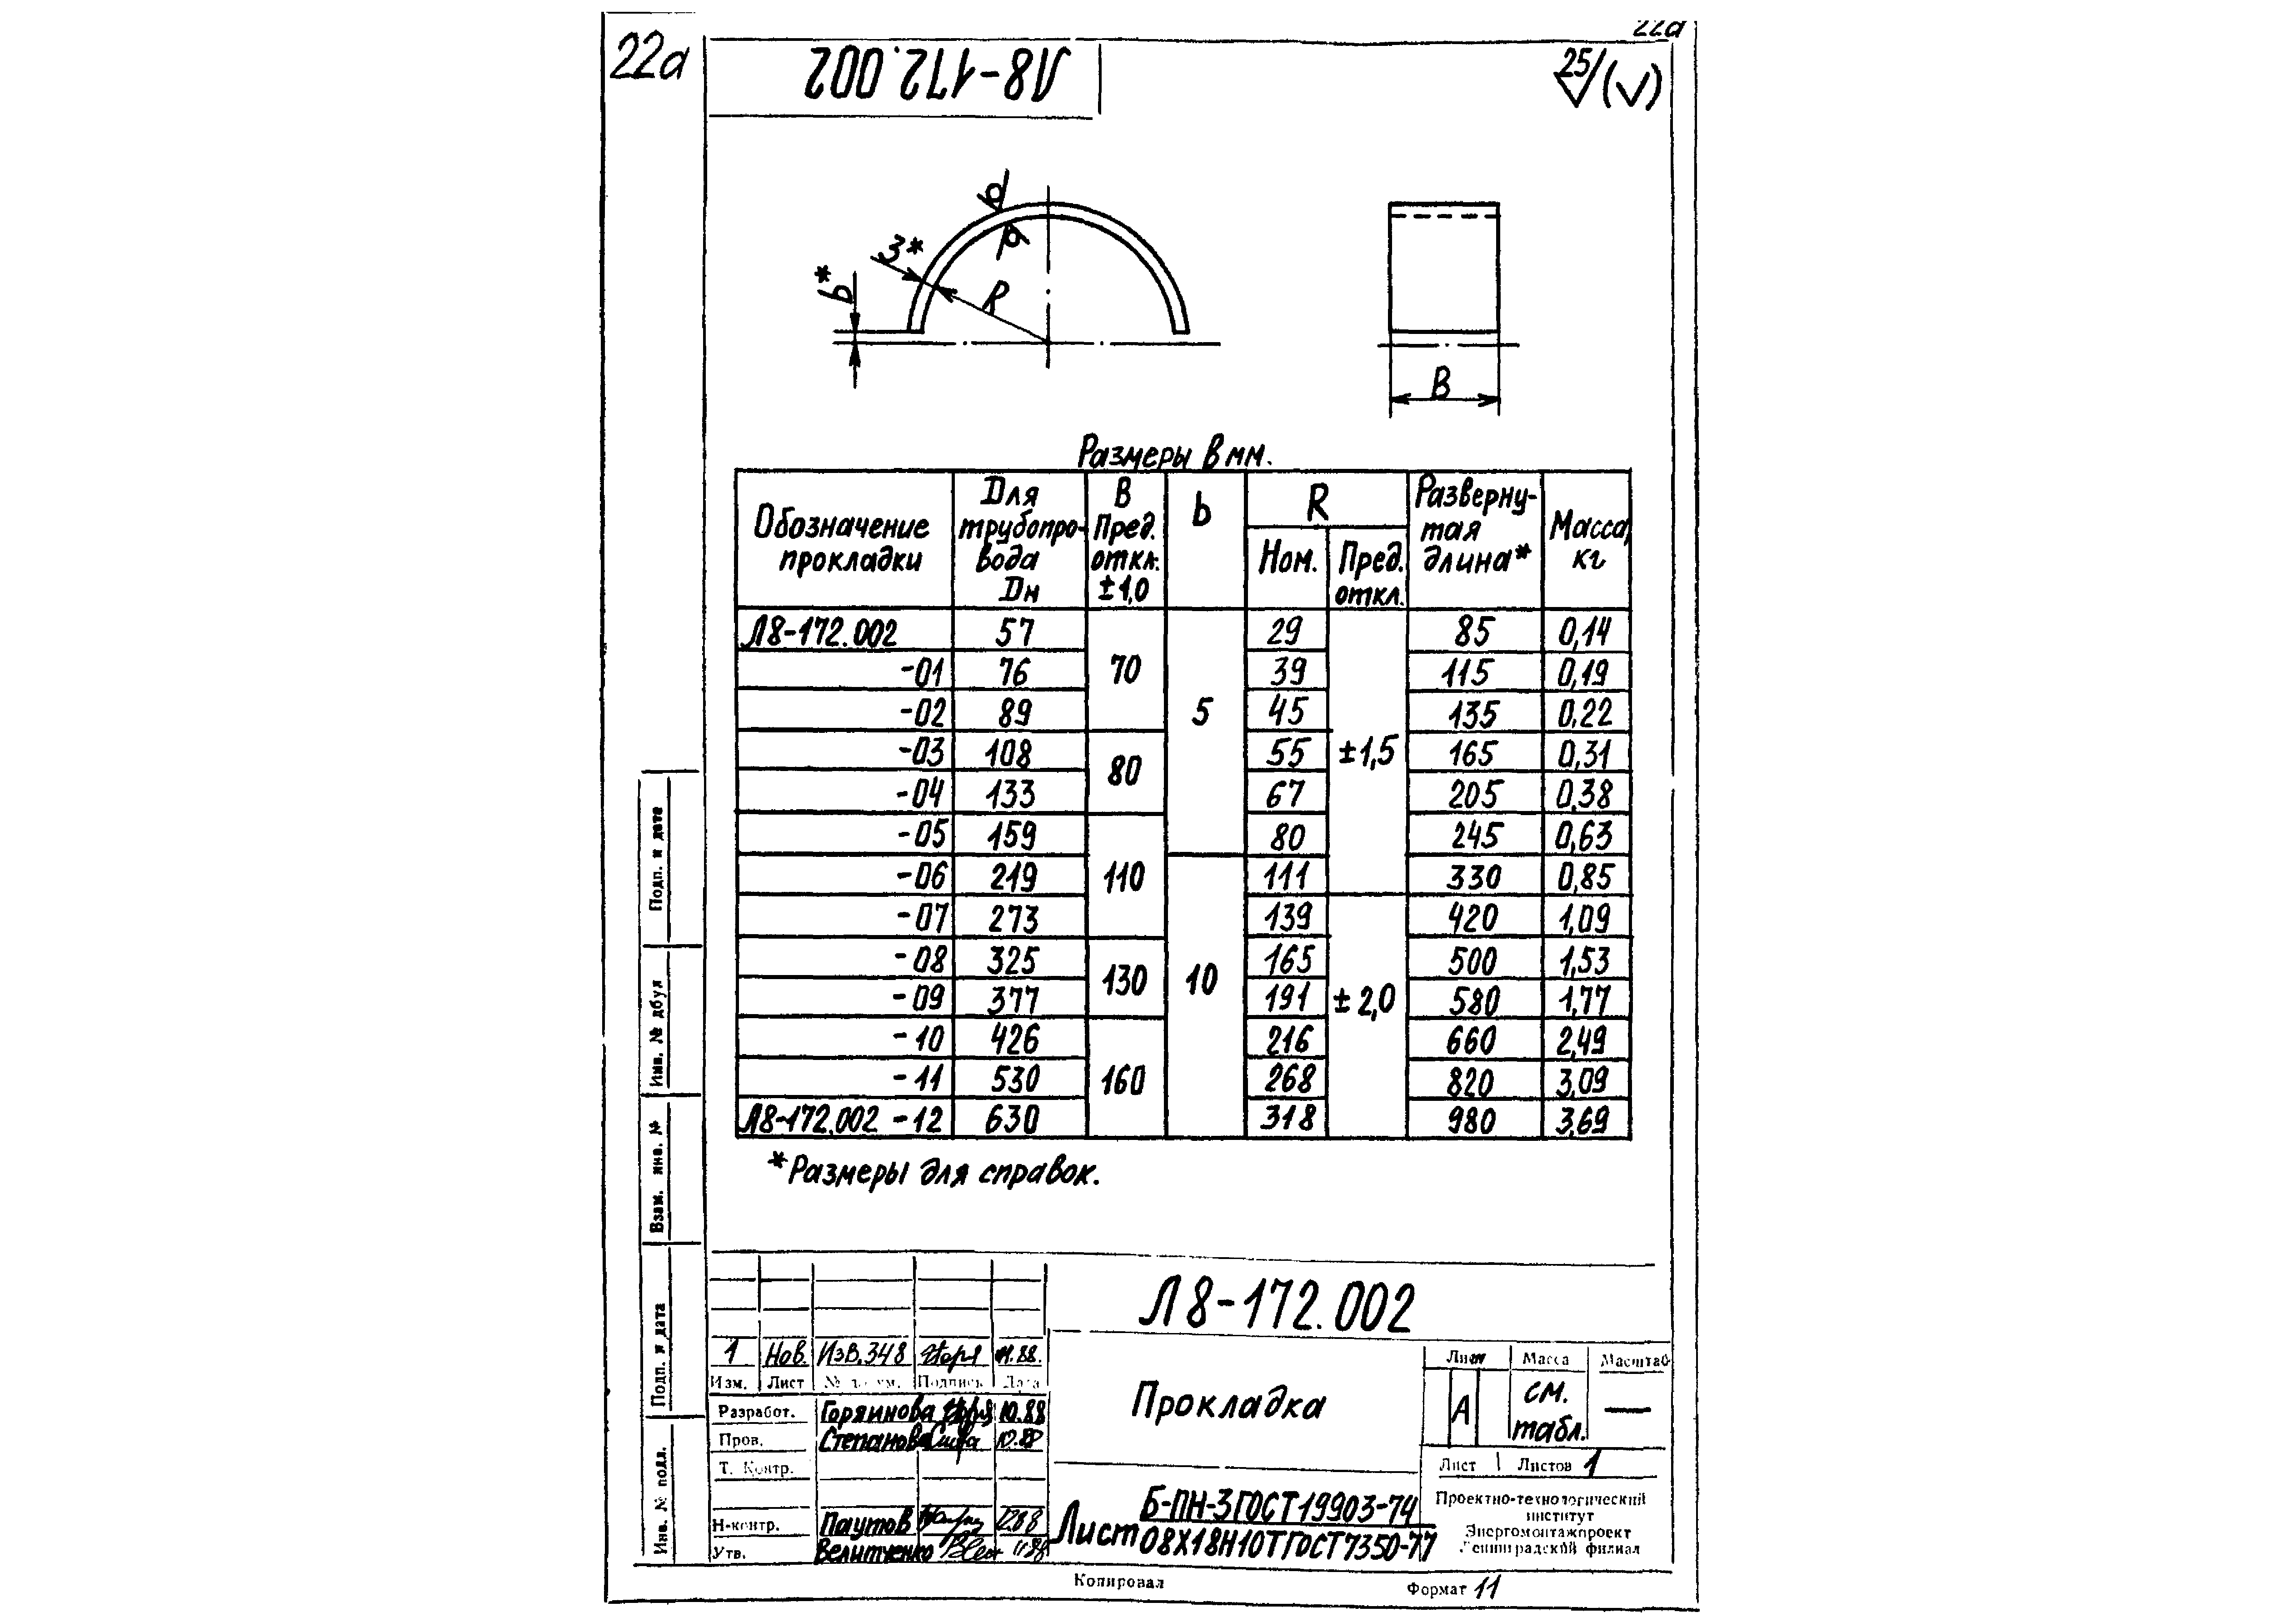 22а
22а
Л8-172.002
25/(√)
3*
R
b*
В
Размеры в мм.
Обозначение прокладки | Для трубопро-вода Dн | В Пред. откл. ±1,0 | b | R Ном. | R Пред. откл. | Разверну-тая длина* | Масса, кг
Л8-172.002 | 57 | 70 | 5 | 29 | ±1,5 | 85 | 0,14
-01 | 76 | 39 | 115 | 0,19
-02 | 89 | 45 | 135 | 0,22
-03 | 108 | 80 | 55 | 165 | 0,31
-04 | 133 | 67 | 205 | 0,38
-05 | 159 | 110 | 80 | 245 | 0,63
-06 | 219 | 10 | 111 | 330 | 0,85
-07 | 273 | 139 | ±2,0 | 420 | 1,09
-08 | 325 | 130 | 165 | 500 | 1,53
-09 | 377 | 191 | 580 | 1,77
-10 | 426 | 160 | 216 | 660 | 2,49
-11 | 530 | 268 | 820 | 3,09
Л8-172.002 -12 | 630 | 318 | 980 | 3,69
*Размеры для справок.
Подп. и дата
Инв. № дубл
Взам. инв. №
Подп. и дата
Инв. № подл.
Л8-172.002
1 Нов. Изв.348
Изм. Лист № докум. Подпись Дата
Разработ. Горяинова 10.88
Пров. Степанова
Т. Контр.
Н-контр. Паутов
Утв. Велитченко
Прокладка
Лист Б-ПН-3 ГОСТ 19903-74
08Х18Н10Т ГОСТ 7350-77
Масса Масштаб
А см. табл. —
Лист Листов 1
Проектно-технологический
институт
Энергомонтажпроект
Ленинградский филиал
Копировал
Формат 11